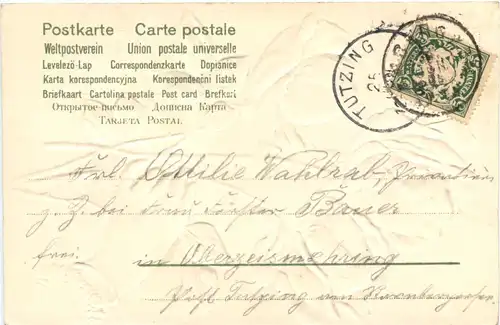 Postkarte Carte postale
Weltpostverein Union postale universelle
Levelező-Lap Correspondenzkarte Dopisnice
Karta korespondencyjna Korespondenční lístek
Briefkaart Cartolina postale Post card Brefkort
Открытое письмо Дописна Карта
TARJETA POSTAL
TUTZING
25
Frl. Ottilie Wahlrab,
z. Z. bei Frau Förster Bauer
frei. in Oberzeismehring
Post Tutzing am Starnbergersee.